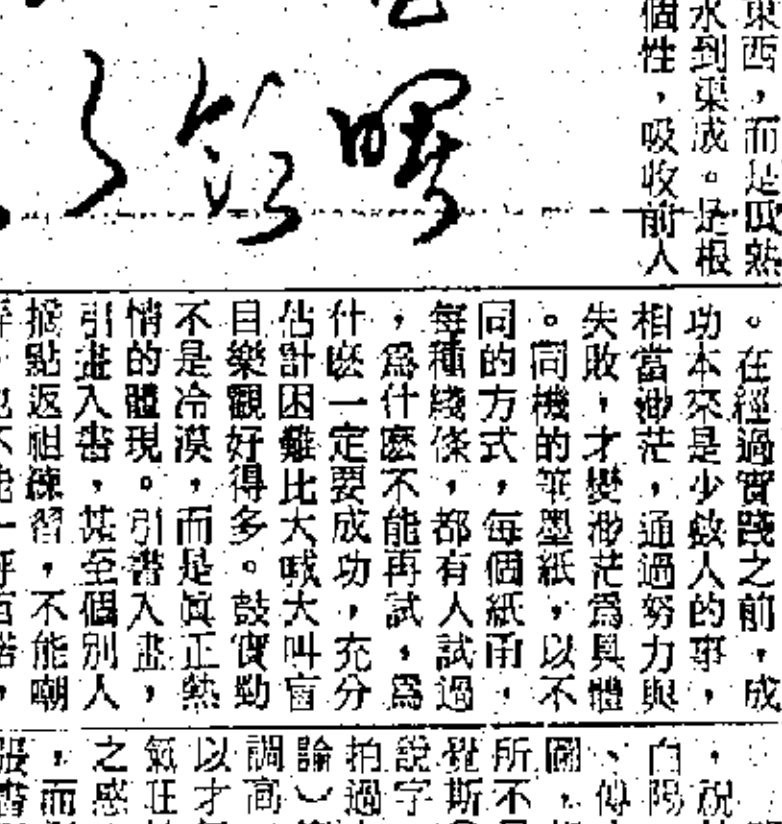 東西,而是瓜熟
水到渠成。是根
個性,吸收前人
曙
。在經過實踐之前,成
功本來是少數人的事,
相當渺茫,通過努力與
失敗,才變渺茫爲具體
。同機的筆墨紙,以不
同的方式,每個紙面,
每種綫條,都有人試過
,爲什麽不能再試,爲
什麽一定要成功,充分
估計困難比大喊大叫盲
目樂觀好得多。鼓實勁
不是冷漠,而是眞正熱
情的體現。引書入畫,
引畫入書,甚至個別人
搞點返祖練習,不能嘲
,說
白陽
、傅
圖,
所不
覺斯
說字
拍過
論︶
調高
以才
氣旺
之感
,而